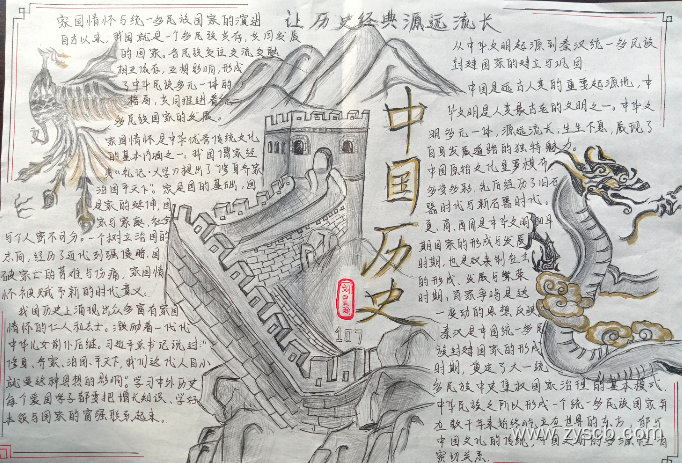 让历史经典源远流长
家国情怀与统一多民族国家的演进
自古以来，我国就是一个多民族共存，共同发展
的国家。各民族交往交流交融
相互依存，互相影响，形成
了中华民族多元一体的
格局，共同推进着统一
多民族国家的发展。
家国情怀是中华优秀传统文化
的基本内涵之一。我国儒家经
典《礼记·大学》提出了"修身齐家
治国平天下"。家是国的基础，国
是家的延伸，国
家与家庭、社会
与个人密不可分。一个树立治国的
志向，经历了近代到强侵略、国
破家亡的苦难与伤痛，家国情
怀被赋予新的时代意义。
我国历史上涌现出众多富有家国
情怀的仁人和志士。鼓励着一代代
中华儿女前仆后继。习近平总书记说过"
修身、齐家、治国、平天下，我们这代人自小
就受这种思想的影响。学习中外历史
每个爱国学子都要把增长知识、学好
本领与国家的富强联系起来。
中国历史
107
从中华文明起源到秦汉统一多民族
封建国家的建立与巩固
中国是远古人类的重要起源地，中
华文明是人类最古老的文明之一。中华文
明多元一体，源远流长，生生不息，展现了
自身发展道路的独特魅力。
中国原始文化呈要模式
多姿多彩，先后经历了旧石
器时代与新石器时代。
夏、商、西周是中华文明早
期国家的形成与发展
时期，也是奴隶制在古
的形成、发展与繁荣
时期，百家争鸣是这
一变动的思想反映
秦汉是中国统一多民
族封建国家的形成
时期，奠定了大一统
多民族中央集权国家治理的基本模式
中华民族之所以形成一个统一多民族国家并
在数千年来始终屹立在世界的东方，都与
中国文化的传统，中国文明的多源性有
密切关系
www.zyscb.com